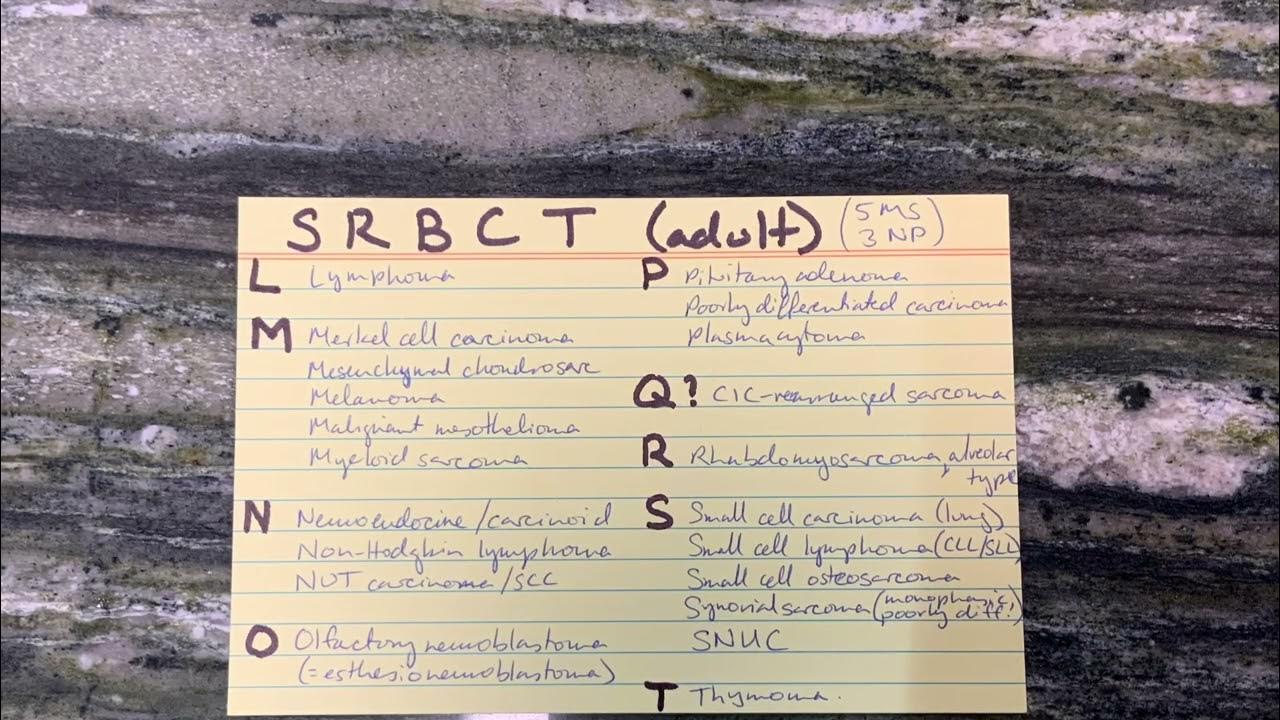 SRBCT (adult) (5 MS
3 NP)
L Lymphoma
M Merkel cell carcinoma
Mesenchymal chondrosarc
Melanoma
Malignant mesothelioma
Myeloid sarcoma
N Neuroendocine/carcinoid
Non-Hodgkin lymphoma
NUT carcinoma/SCC
O Olfactory neuroblastoma
(=esthesioneuroblastoma)
P Pituitary adenoma
Poorly differentiated carcinoma
Plasmacytoma
Q? CIC-rearranged sarcoma
R Rhabdomyosarcoma, alveolar
type
S Small cell carcinoma (lung)
Small cell lymphoma (CLL/SLL)
Small cell osteosarcoma
Synovial sarcoma (monophasic
poorly diff!)
SNUC
T Thymoma.